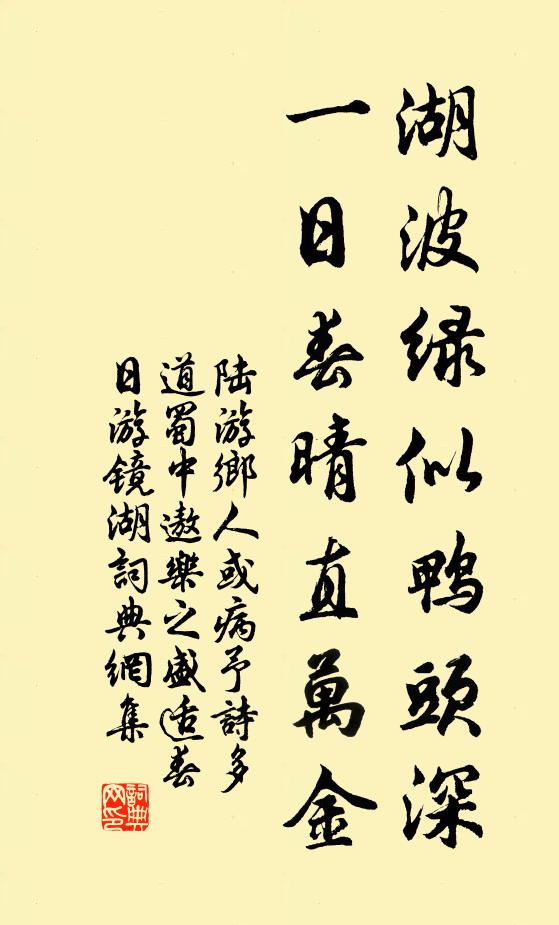 湖波绿似鸭頭深
一日春晴直萬金
陆游鄉人或病予詩多
道蜀中遨樂之盛适春
日游鏡湖詞典網集
詞典网印